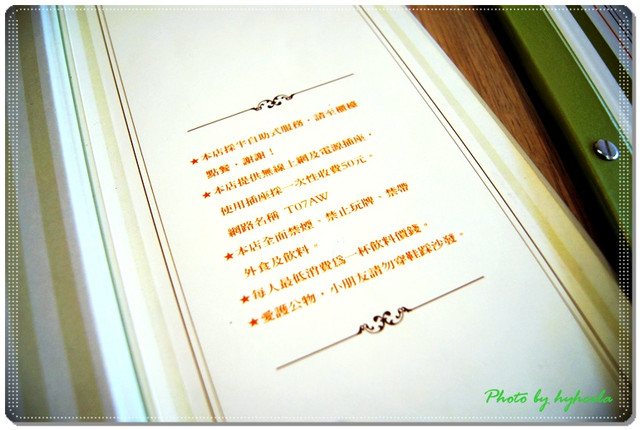 ★本店採半自助式服務，請至櫃檯
點餐，謝謝！
★本店提供無線上網及電源插座，
使用插座採一次性收費50元。
網路名稱 T07AW
★本店全面禁煙、禁止玩牌、禁帶
外食及飲料。
★每人最低消費為一杯飲料價錢。
★愛護公物，小朋友請勿穿鞋踩沙發。
Photo by